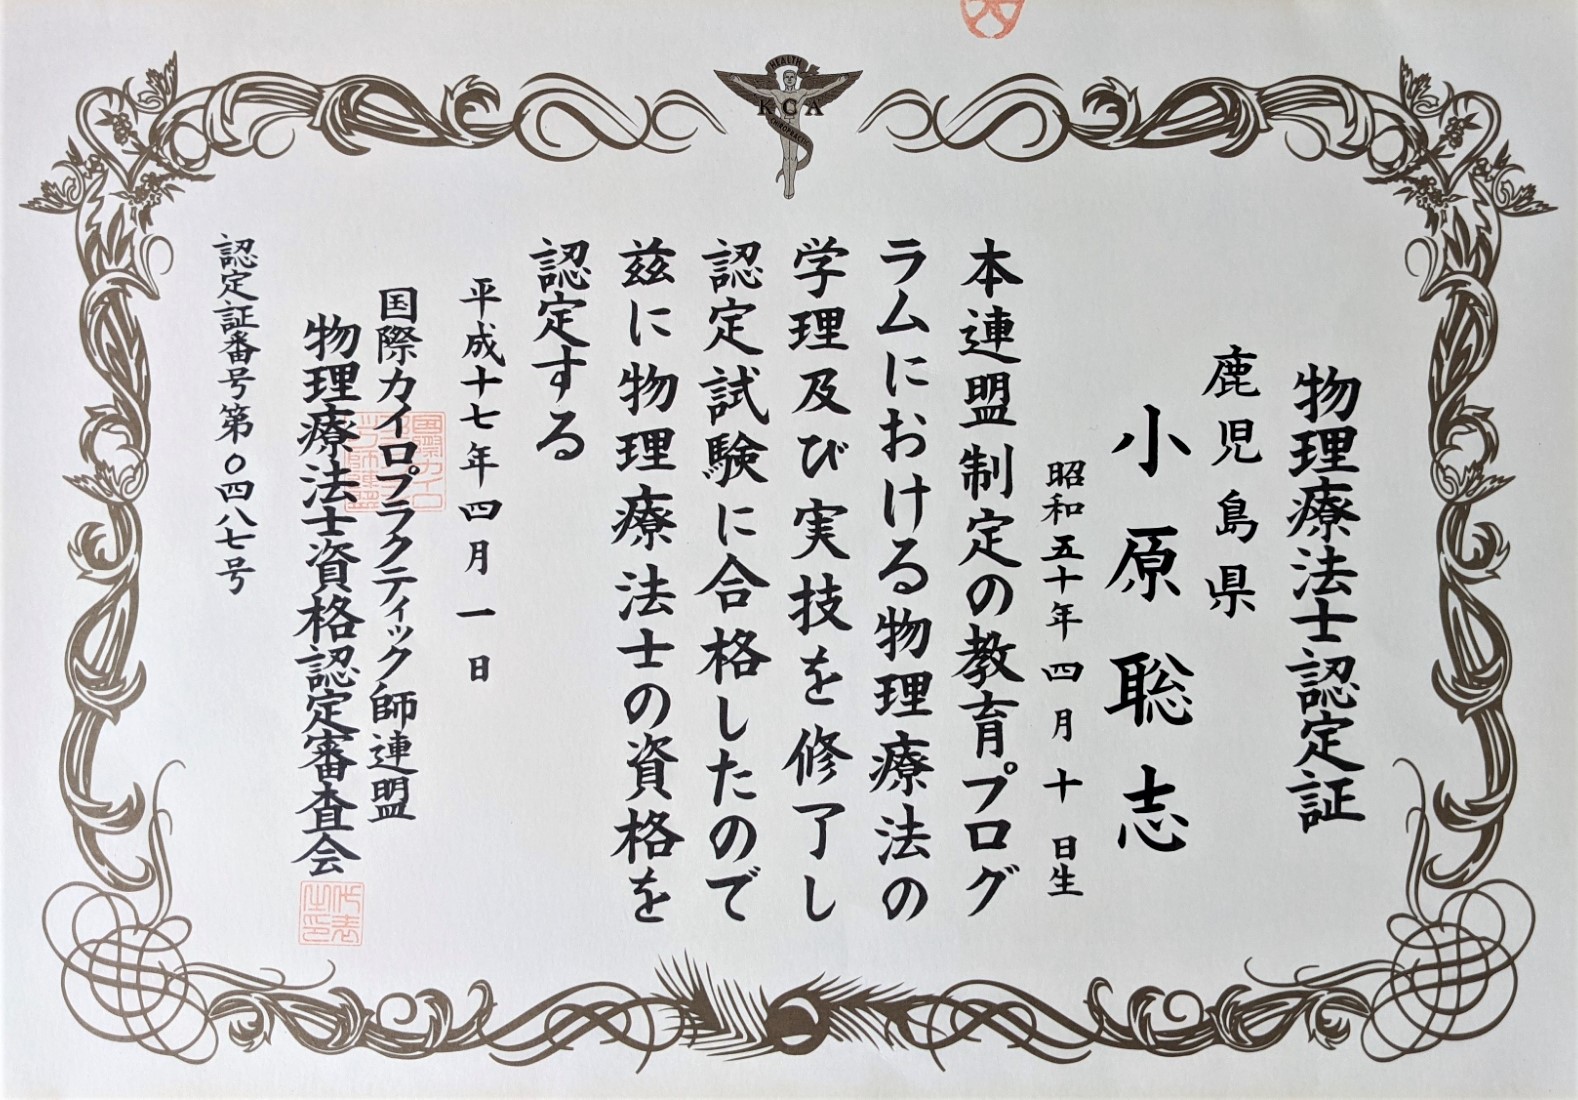 HEALTH
K C A
CHIROPRACTIC
物理療法士認定証
鹿児島県
小原聡志
昭和五十年四月十日生
本連盟制定の教育プログ
ラムにおける物理療法の
学理及び実技を修了し
認定試験に合格したので
玆に物理療法士の資格を
認定する
平成十七年四月一日
国際カイロプラクティック師連盟
物理療法士資格認定審査会
代表
之印
認定証番号第〇四八七号